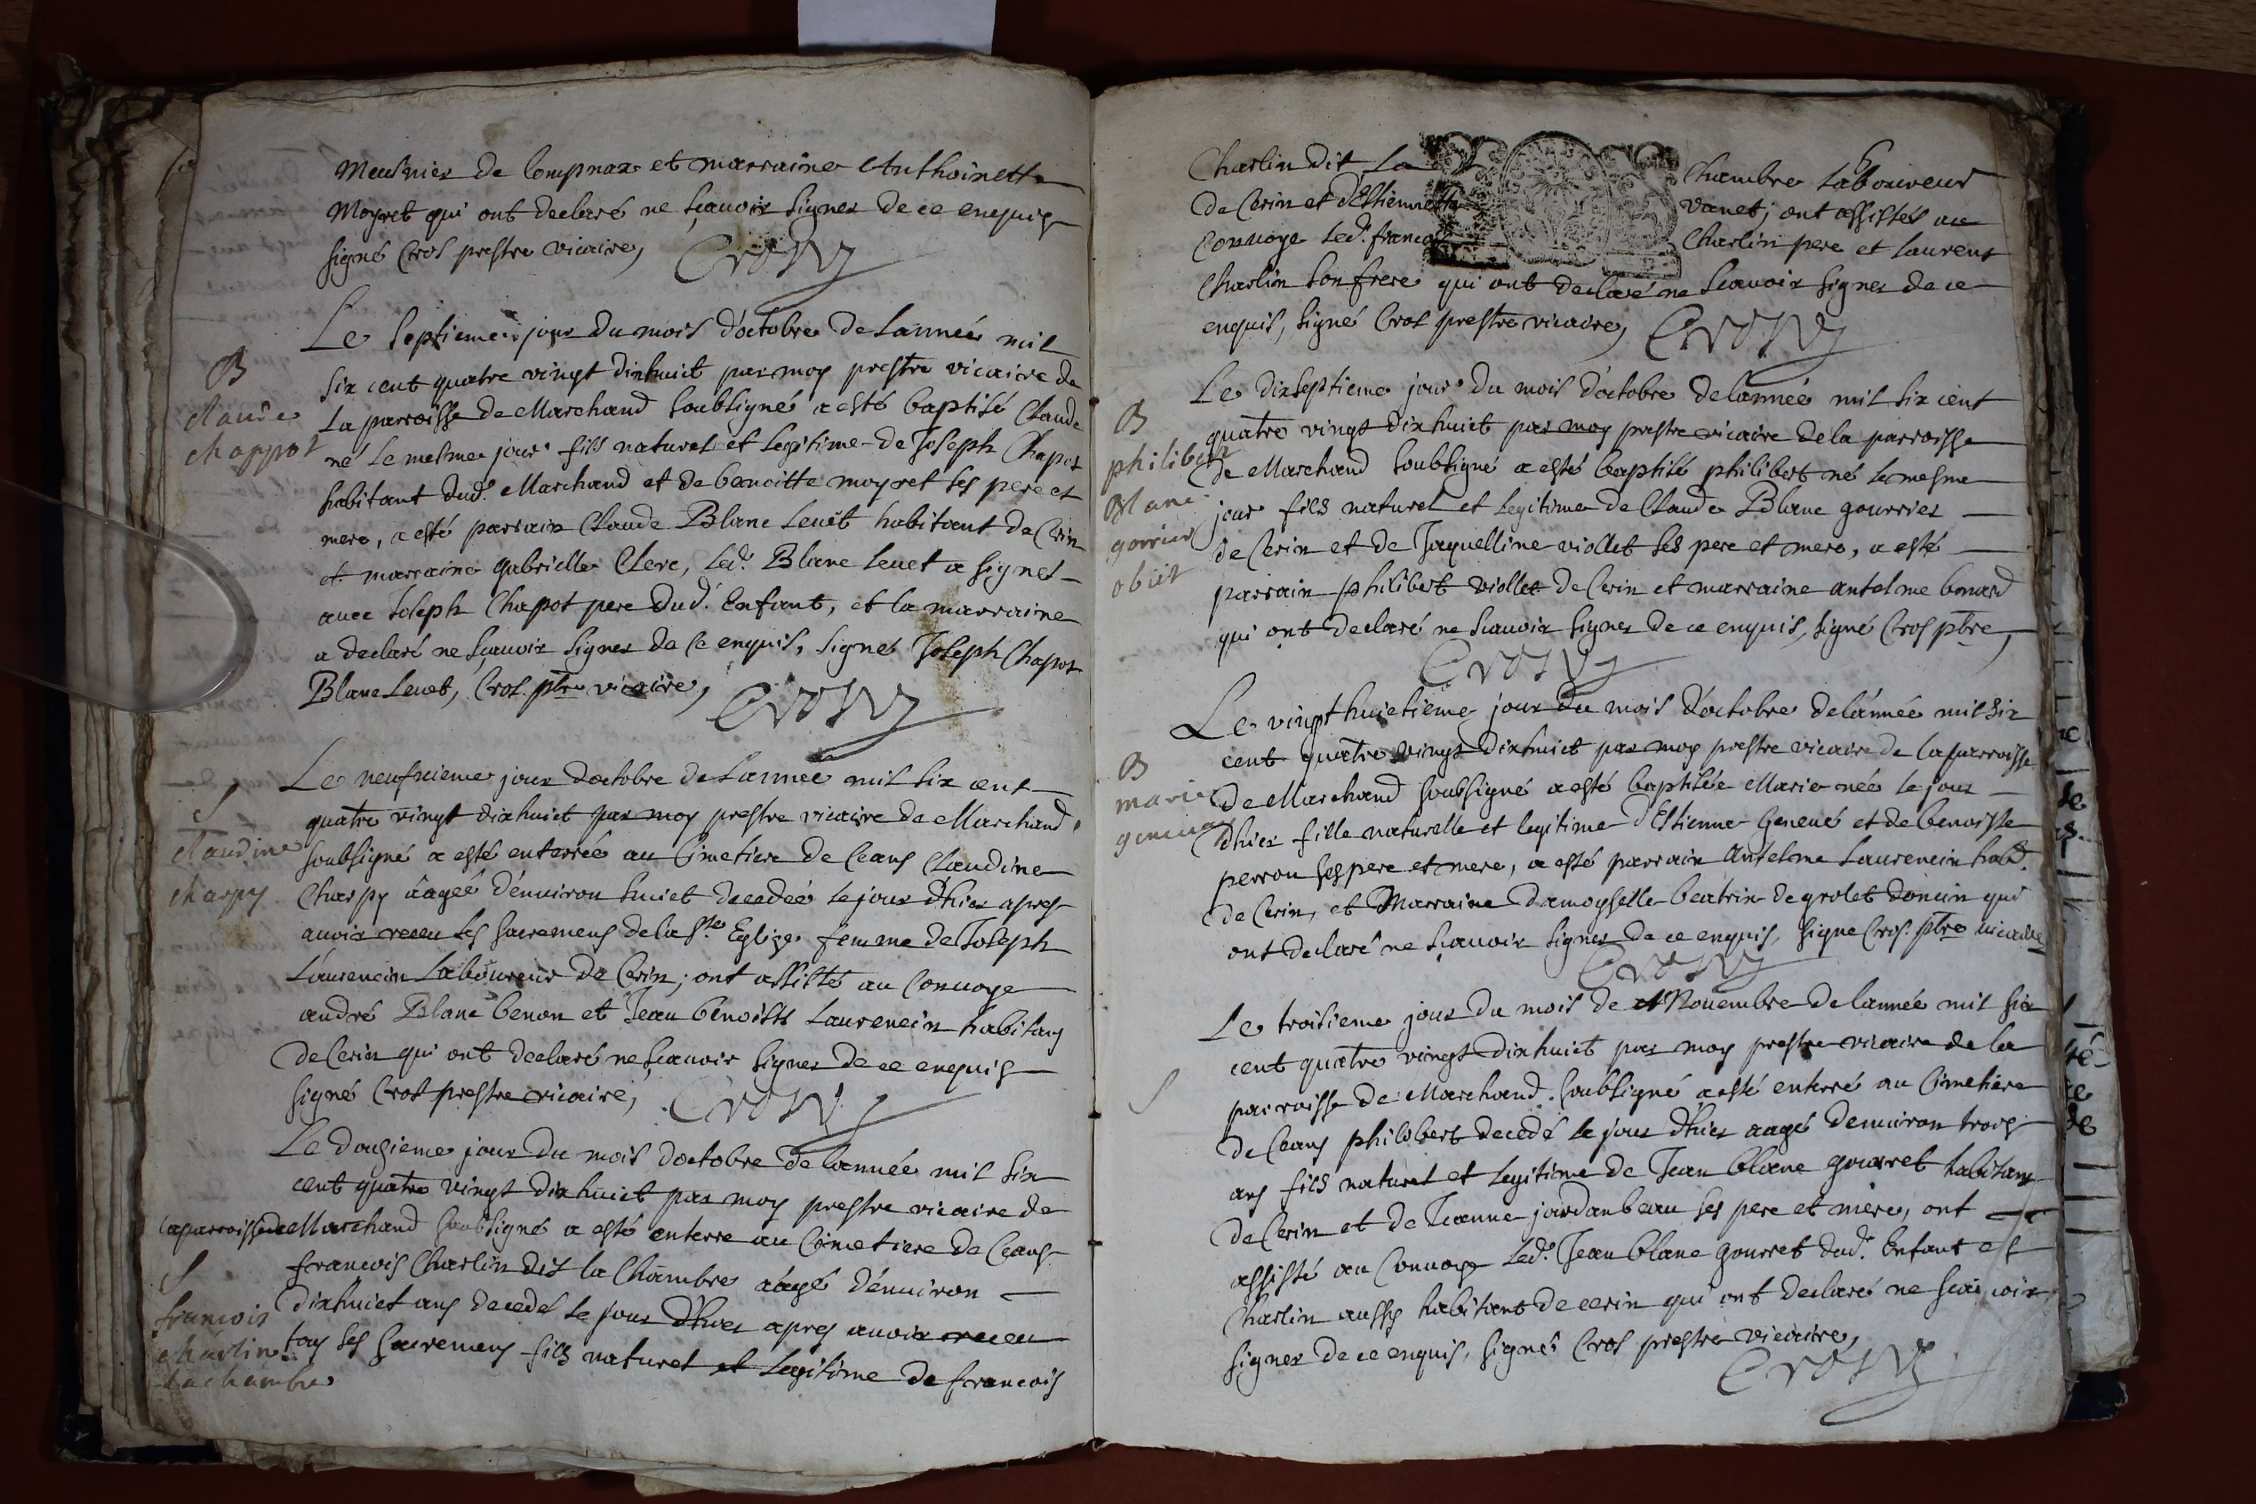 Meusnier de Compnaz et marraine Anthoinette
Moyret qui ont declaré ne sçavoir signer de ce enquis
signé Cros prestre vicaire,
Cros
Le septieme jour du mois d'octobre de l'année mil
B
six cent quatre vingt dixhuict par moy prestre vicaire de
claude
chappot
la parroisse de Marchand soubsigné a esté baptisé Claude
né le mesme jour fils naturel et legitime de Joseph Chapot
habitant dud. Marchand et de benoitte moyret ses pere et
mere, a esté parrain Claude Blanc Levet habitant de Cerin
et marraine gabrielle Clerc, led. Blanc Levet a signé
avec Joseph Chapot pere dud. Enfant, et la marraine
a declaré ne sçavoir signer de ce enquis, signé Joseph Chapot
Blanc Levet, Cros ptre vicaire,
Cros
Le neufvieme jour d'octobre de l'année mil six cent
S
quatre vingt dixhuict par moy prestre vicaire de Marchand
claudine
charpy
soubsigné a esté enterrée au Cimetiere de Ceans Claudine
Charpy aagée d'environ huict decedée le jour d'hier apres
avoir receu les sacremens de la Ste Eglize femme de Joseph
Laurencin Laboureur de Cerin; ont assisté au Convoye
andré Blanc benon et Jean benoist Laurencin habitans
de Cerin qui ont declaré ne sçavoir signer de ce enquis
signé Cros prestre vicaire,
Cros
Le douzieme jour du mois d'octobre de l'année mil six
cent quatre vingt dixhuict par moy prestre vicaire de
la parroisse de Marchand soubsigné a esté enterré au Cimetiere de Ceans
S
francois
charlin
la chambre
francois Charlin dit la Chambre aagé d'environ
dixhuict ans decedé le jour d'hier apres avoir receu
tous les sacremens fils naturel et legitime de francois
Charlin dit La Chambre Laboureur
de Cerin et d'Estiennette vanet; ont assistés au
Convoye led. francois Charlin pere et Laurent
Charlin son frere qui ont declaré ne sçavoir signer de ce
enquis, signé Cros prestre vicaire,
Cros
Le dixseptieme jour du mois d'octobre de l'année mil six cent
B
philibert
Blanc
gorrier
obiit
quatre vingt dixhuict par moy prestre vicaire de la parroisse
de Marchand soubsigné a esté baptisé philibert né le mesme
jour fils naturel et legitime de Claude Blanc gourrier
de Cerin et de Jaquelline viollet ses pere et mere, a esté
parrain philibert viollet de Cerin et marraine antelme bonard
qui ont declaré ne sçavoir signer de ce enquis, signé Cros ptre,
Cros
Le vingt huictieme jour du mois d'octobre de l'année mil six
cent quatre vingt dixhuict par moy prestre vicaire de la parroisse
B
marie
de Marchand soubsigné a esté baptisée Marie née le jour
d'hier fille naturelle et legitime d'Estienne Genevé et de benoiste
perrou ses pere et mere, a esté parrain Antelme Laurencin habt.
de Cerin, et Marraine Damoyselle beatrix de grolet doncin qui
ont declaré ne sçavoir signer de ce enquis, signé Cros ptre vicaire
Cros
Le troisieme jour du mois de Novembre de l'année mil six
cent quatre vingt dixhuict par moy prestre vicaire de la
S
parroisse de Marchand soubsigné a esté enterré au Cimetiere
de Ceans philibert decedé le jour d'hier aagé d'environ trois
ans fils naturel et legitime de Jean blanc gourret habitans
de Cerin et de Jeanne jourdan beau ses pere et mere, ont
assisté au Convoye led. Jean blanc Gourret dud. Enfant et
Charlin aussy habitant de cerin qui ont declaré ne sçavoir
signer de ce enquis, signé Cros prestre vicaire,
Cros